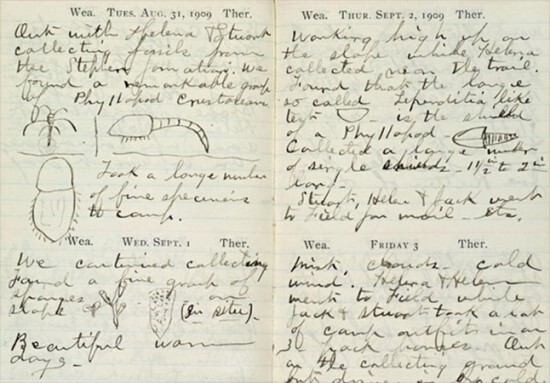 Wea. TUES. AUG. 31, 1909 Ther.
Out with Helena & Stuart
collecting fossils from
the Stephen formation. We
found a remarkable group
of Phyllopod Crustaceans.
Took a large number
of fine specimens
to camp.
Wea. WED. SEPT. 1 Ther.
We continued collecting
Found a fine group of
sponges on
slope (in situ).
Beautiful warm
days.
Wea. THUR. SEPT. 2, 1909 Ther.
Working high up on
the slope while Helena
collected near the trail.
Found that the large
so called Leperditia like
test is the shield
of a Phyllopod.
Collected a large number
of single shields 1½ in to 2 in
long.
Stuart, Helen & Jack went
to Field for mail etc.
Wea. FRIDAY 3 Ther.
Mist, clouds cold
wind. Helena & Helen
went to Field while
Jack & Stuart took a lot
of camp outfits in on
3 pack horses. Out
on the collecting ground
cold